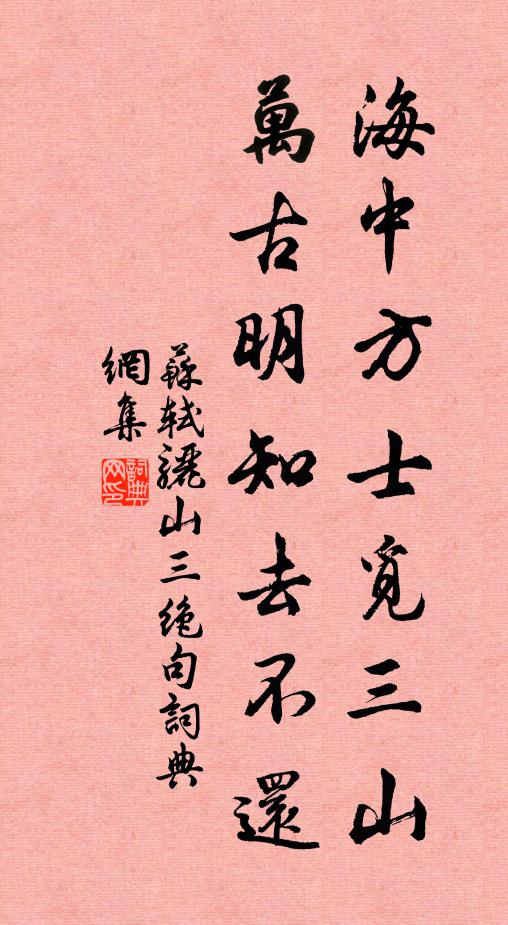 海中方士覓三山
萬古明知去不還
蘇軾驪山三絶句詞典
網集
詞典網印